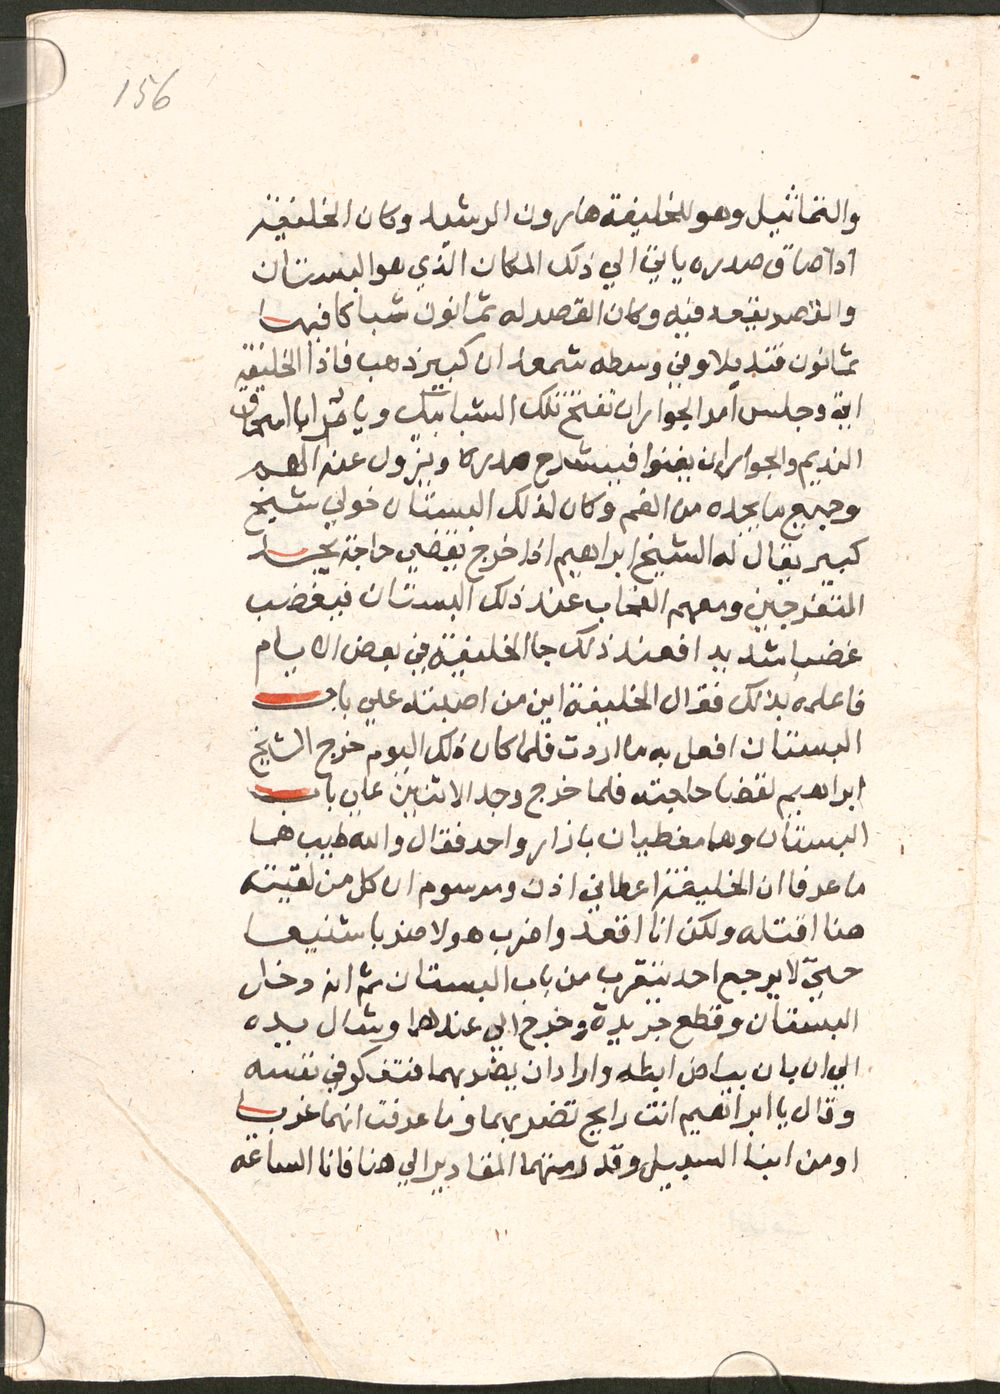 156
والتماثيل وهو للخليفة هارون الرشيد وكان الخليفة
اذا ضاق صدره ياتي الي ذلك المكان الذي هو البستان
والقصر يقعد فيه وكان القصر له ثمانون شباكا فيها
ثمانون قنديلا وفي وسطه شمعدان كبير ذهب فاذا الخليفة
اتي وجلس امر الجوار ان تفتح تلك الشبابيك ويامر ابا اسحاق
النديم والجوار ان يغنوا فينشرح صدره ويزول عنه الهم
وجميع ما يجده من الغم وكان لذلك البستان خولي شيخ
كبير يقال له الشيخ ابراهيم اذا خرج يقضي حاجة يجد
المتفرجين ومعهم القحاب عند ذلك البستان فيغضب
غضبا شديدا فعند ذلك جا الخليفة في بعض الايام
فاعلمه بذلك فقال الخليفة اين من اصبته علي باب
البستان افعل به ما اردت فلما كان ذلك اليوم خرج الشيخ
ابراهيم لقضا حاجته فلما خرج وجد الاثنين علي باب
البستان وهما مغطيان بازار واحد فقال والله طيب هما
ما عرفا ان الخليفة اعطاني اذن ومرسوم ان كل من لقيته
هنا اقتله ولكن انا اقعد واضرب هولا ضربا شنيعا
حتي لا يرجع احد يتقرب من باب البستان ثم انه دخل
البستان وقطع جريدة وخرج الي عندهما وشال يده
الي ان بان بياض ابطه واراد ان يضربهما فتفكر في نفسه
وقال يا ابراهيم انت رايح تضربهما وما عرفت انهما غربا
او من ابنا السبيل وقد رمتهما المقادير الي هنا فانا الساعة